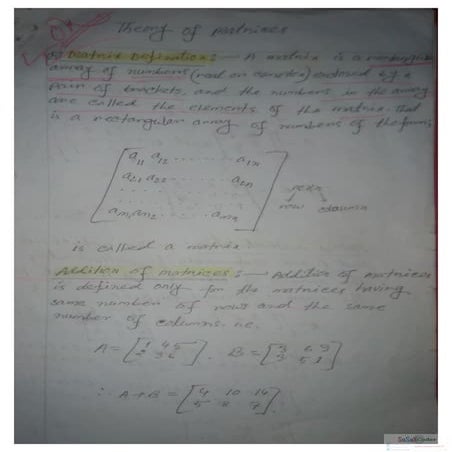 Theory of matrices
Matrix Definations :— A matrix is a rectangular
array of numbers (real or complex) enclosed by a
pair of brackets, and the numbers in the array
are called the elements of the matrix. that
is a rectangular array of numbers of the form,
[ a11 a12 ........ a1n
a21 a22 ........ a2n
. . . . . . . .
am1 am2 ....... amn ]
row column
is called a matrix
Addition of matrices :— Addition of matrices
is defined only for the matrices having
same number of rows and the same
number of columns. i.e.
A = [ 1 4 5
2 3 6 ] . B = [ 3 6 9
3 5 1 ]
∴ A+B = [ 4 10 14
5 8 7 ]